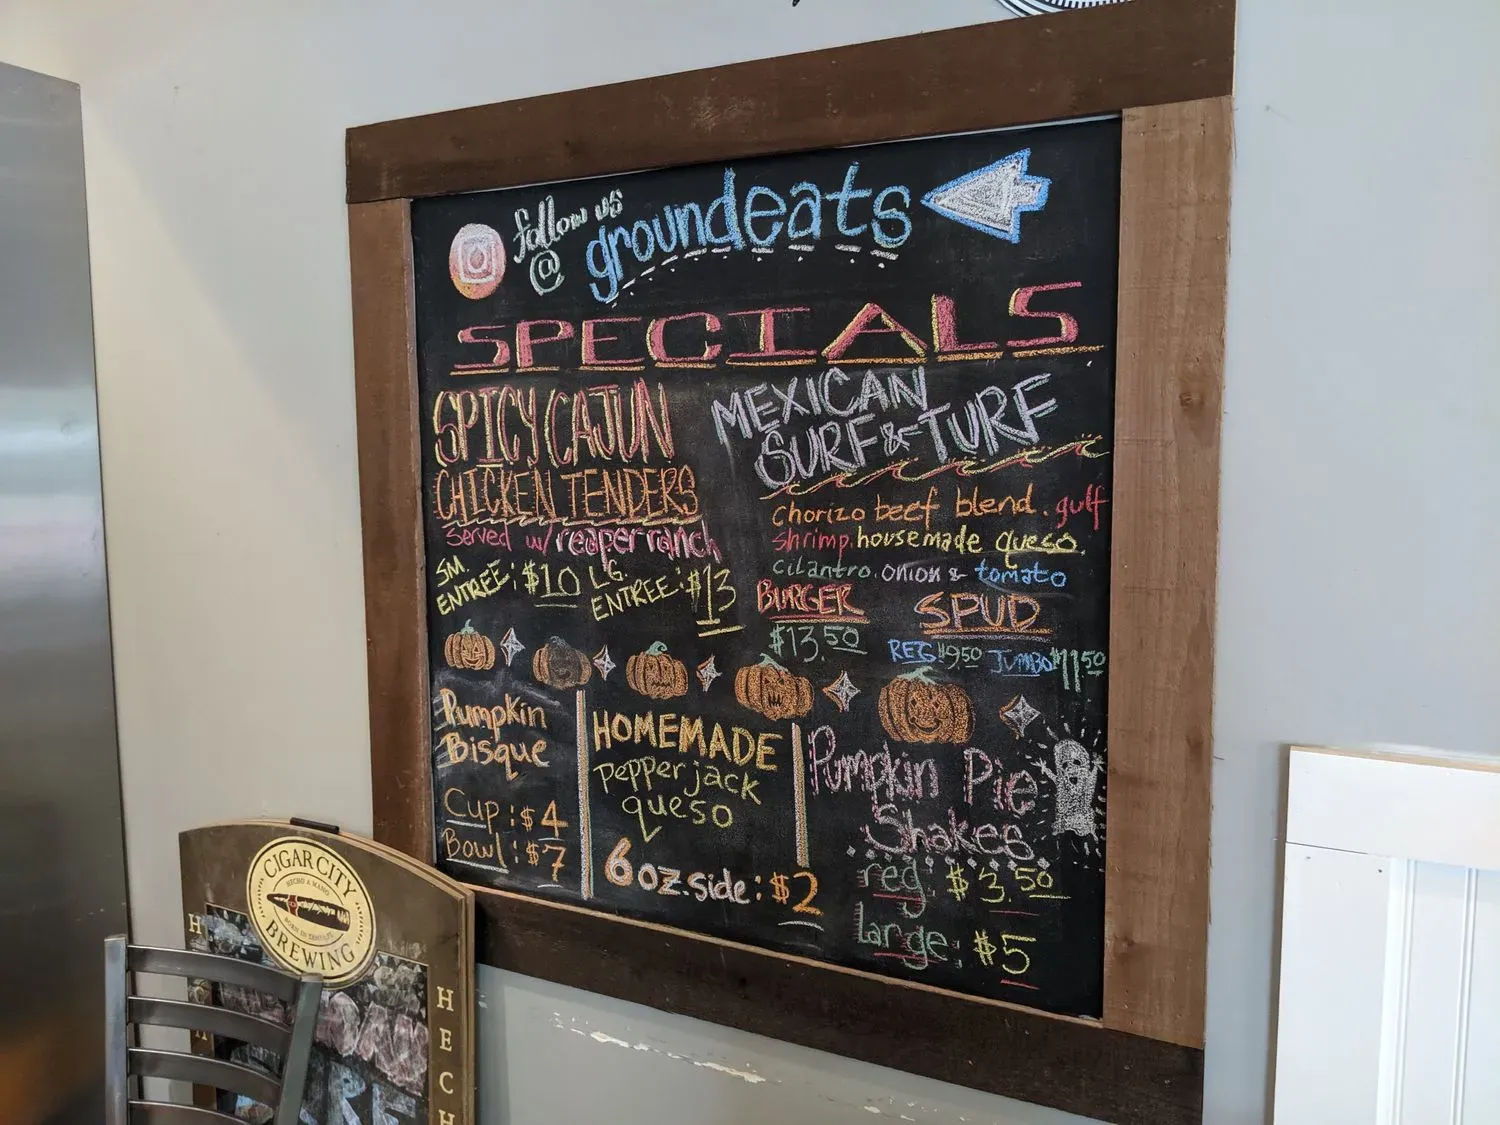 follow us
@ groundeats
SPECIALS
SPICY CAJUN
CHICKEN TENDERS
served w/ reaper ranch
SM. ENTREE: $10 LG. ENTREE: $13
MEXICAN
SURF & TURF
chorizo beef blend. gulf
shrimp. housemade queso.
cilantro. onion & tomato
BURGER
$13.50
SPUD
REG $9.50 JUMBO $11.50
Pumpkin
Bisque
Cup: $4
Bowl: $7
HOMEMADE
pepperjack
queso
6 oz. side: $2
Pumpkin Pie
Shakes
reg: $3.50
large: $5
CIGAR CITY
HECHO A MANO
BREWING
HECH